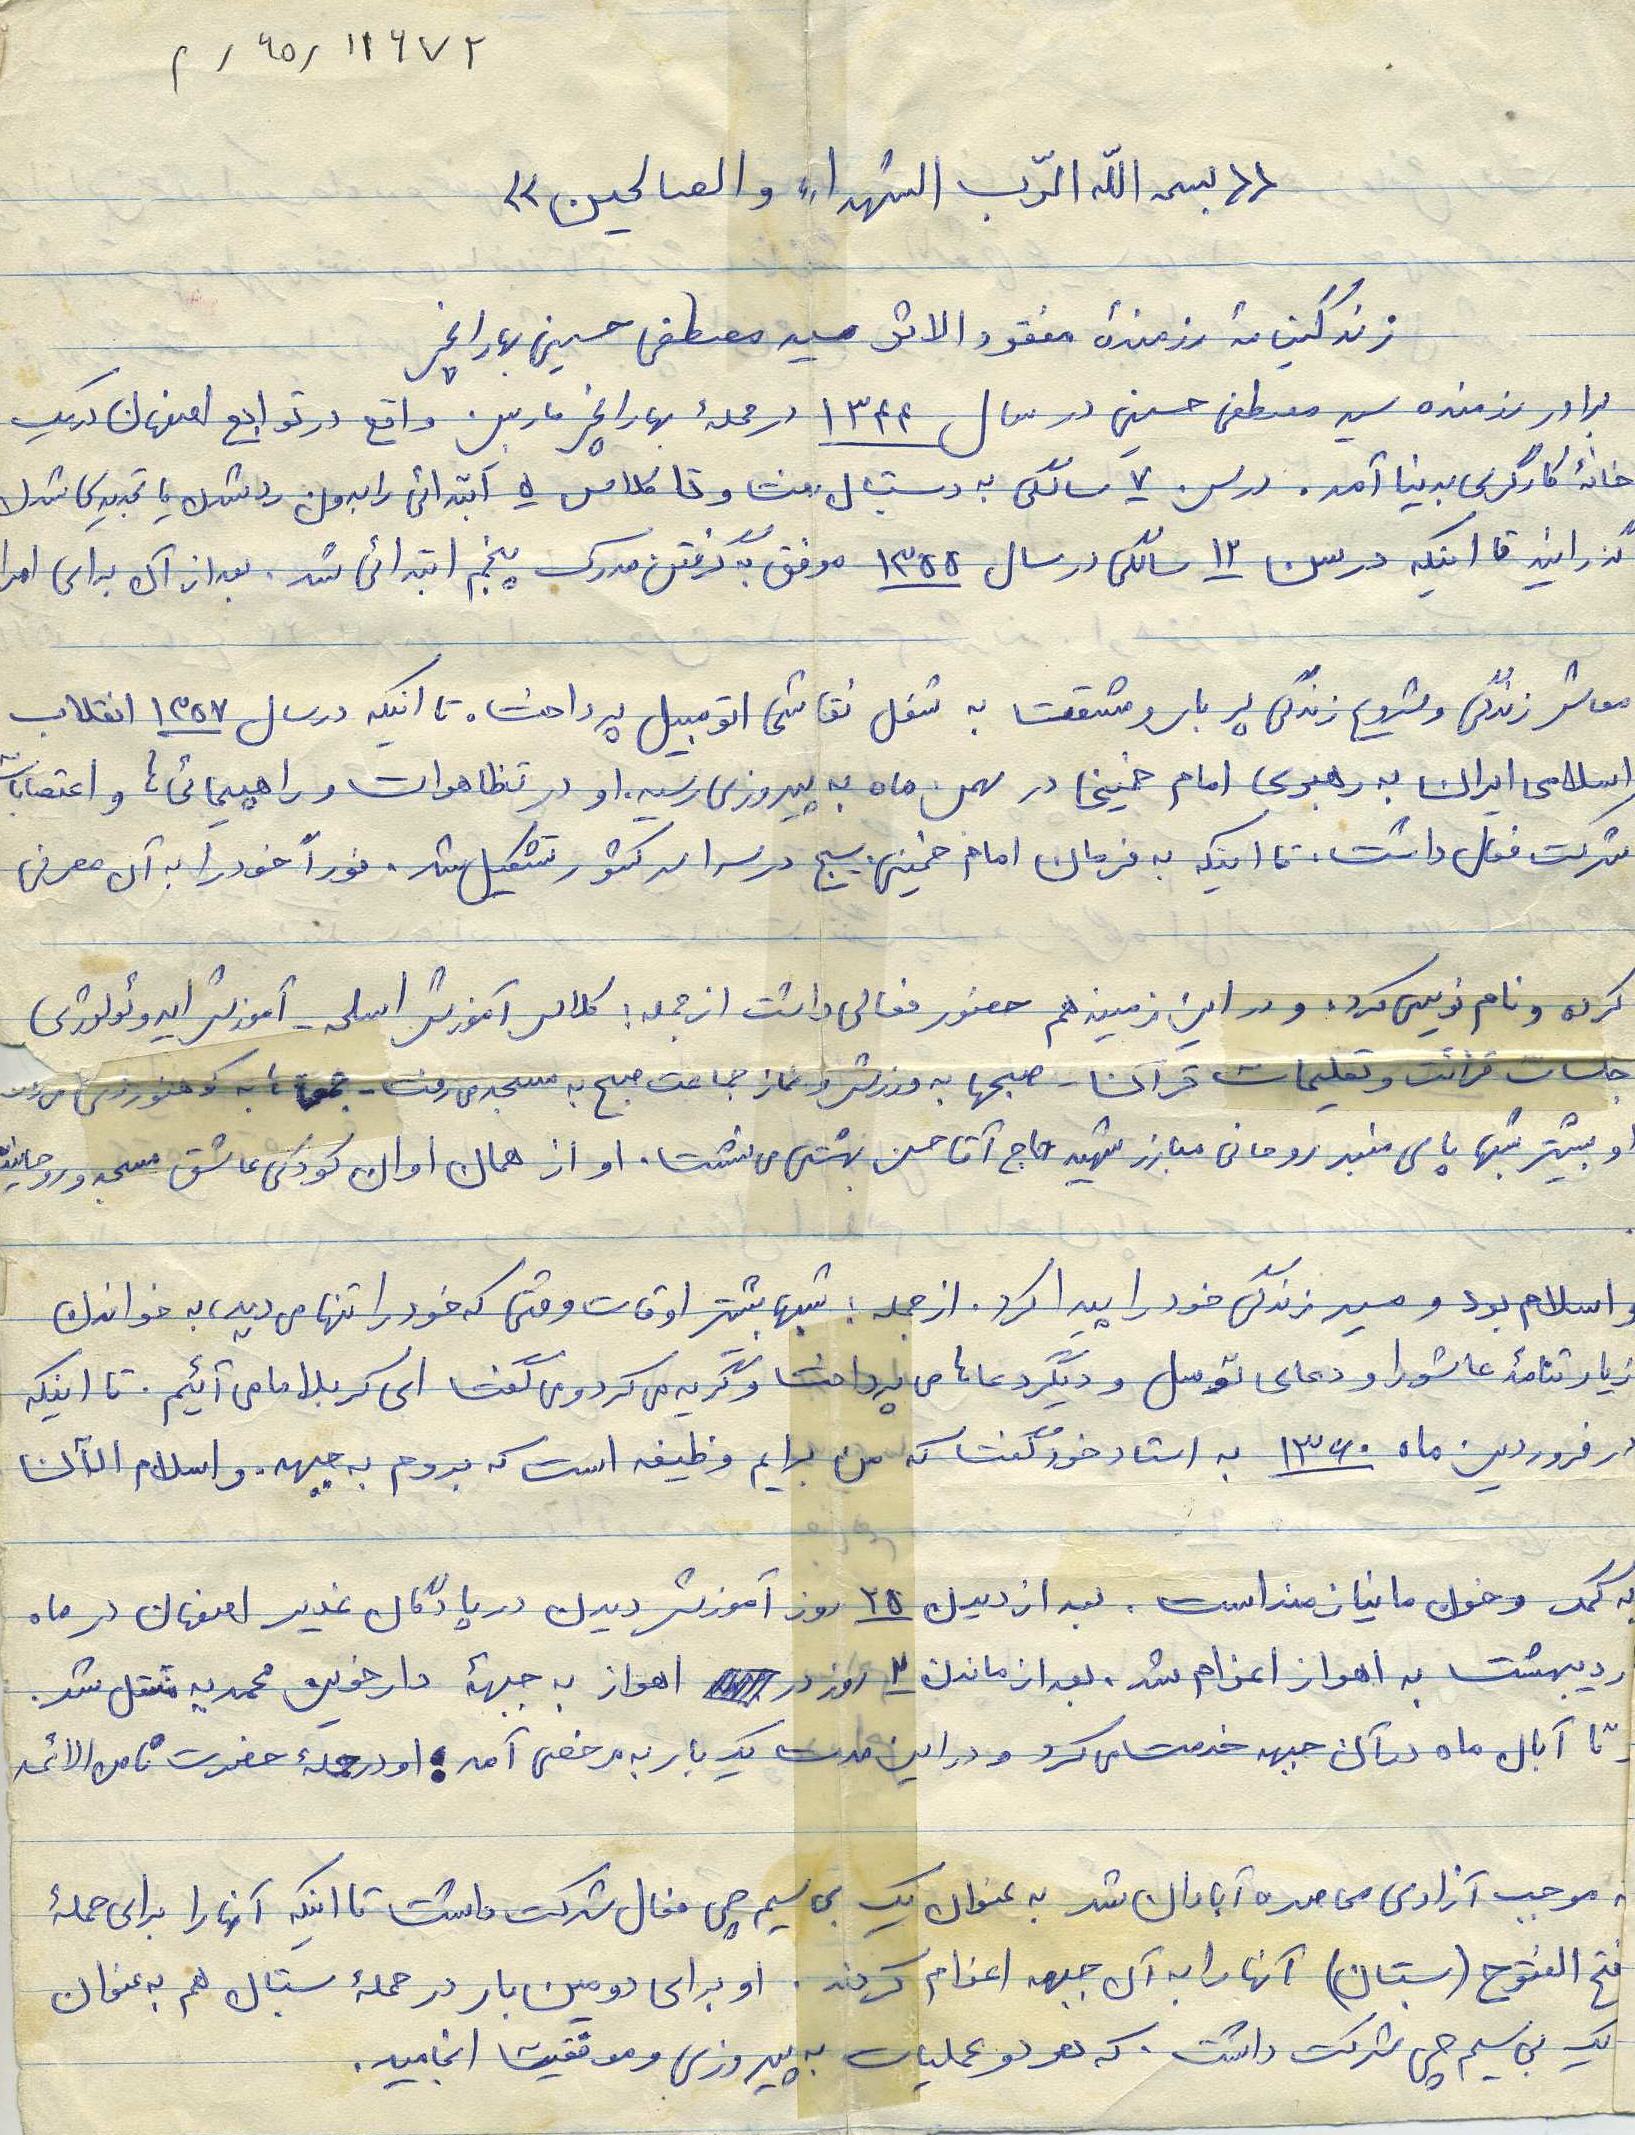 ۱۱۶۷۲ / ۶۵ / م
«بسمه اللّه الرّب الشهداء و الصالحین»
زندگینامهٔ رزمندهٔ مفقود الاثر سید مصطفی حسینی بهارانچی
برادر رزمنده سید مصطفی حسینی در سال ۱۳۴۴ در محلهٔ بهارانچی ماربین واقع در توابع اصفهان در یک
خانهٔ کارگری بدنیا آمد. در سن ۷ سالگی به دبستان رفت و تا کلاس ۵ ابتدائی را بدون رد شدن یا تجدیدی شدن
گذرانید تا اینکه در سن ۱۲ سالگی در سال ۱۳۵۵ موفق به گرفتن مدرک پنجم ابتدائی شد. بعد از آن برای امرا
معاش زندگی و شروع زندگی پر بار و مشقت به شغل نقاشی اتومبیل پرداخت. تا اینکه در سال ۱۳۵۷ انقلاب
اسلامی ایران به رهبری امام خمینی در بهمن ماه به پیروزی رسید. او در تظاهرات و راهپیمائی‌ها و اعتصابات
شرکت فعال داشت. تا اینکه به فرمان امام خمینی بسیج در سراسر کشور تشکیل شد. فوراً خود را به آن معرفی
کرده و نام نویسی کرد. و در این زمینه هم حضور فعالی داشت از جمله: کلاس آموزش اسلحه - آموزش ایدوئولوژی
جلسات قرائت و تعلیمات قرآن - صبحها به ورزش و نماز جماعت صبح به مسجد می‌رفت - جمعه‌ها به کوهنوردی می‌رفت
او بیشتر شبها پای منبر روحانی مبارز شهید حاج آقا حسن بهشتی می‌نشست. او از همان اوان کودکی عاشق مسجد و روحانیت
و اسلام بود و مسیر زندگی خود را پیدا کرد. از جمله: شبها بیشتر اوقات وقتی که خود را تنها می‌دید، به خواندن
زیارتنامهٔ عاشورا و دعای توسل و دیگر دعاها می‌پرداخت و گریه می‌کرد و می‌گفت ای کربلا ما می‌آئیم. تا اینکه
در فروردین ماه ۱۳۶۰ به استاد خود گفت که من برایم وظیفه است که بروم به جبهه. و اسلام الآن
به کمک و خون ما نیازمند است. بعد از دیدن ۲۵ روز آموزش دیدن در پادگان غدیر اصفهان در ماه
ردیبهشت به اهواز اعزام شد. بعد از ماندن ۲ روز در اهواز به جبههٔ دارخوین محمدیه منتقل شد.
تا آبان ماه در آن جبهه خدمت می‌کرد و در این مدت یک بار به مرخصی آمد. او در حملهٔ حضرت ثامن الائمه
ه موجب آزادی محاصره آبادان شد به عنوان یک بی سیم چی فعال شرکت داشت تا اینکه آنها را برای حملهٔ
فتح الفتوح (بستان) آنها را به آن جبهه اعزام کردند. او برای دومین بار در حملهٔ بستان هم به عنوان
یک بی سیم چی شرکت داشت. که هر دو عملیات به پیروزی و موفقیت انجامید.